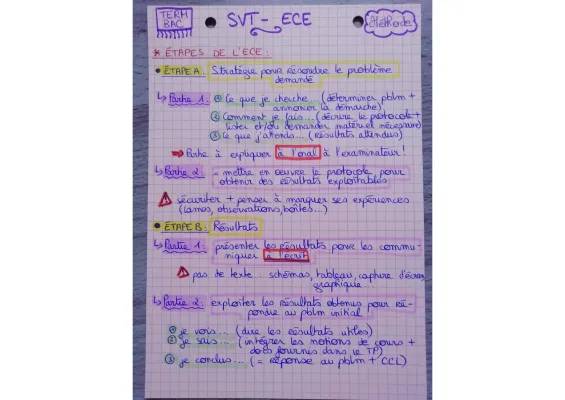 TERM BAC
SVT - ECE
Méthode
* ÉTAPES DE L'ECE:
• ÉTAPE A: Stratégie pour résoudre le problème
demandé
↳ Partie 1: ① Ce que je cherche... (déterminer pblm +
annoncer la démarche)
② Comment je fais... (décrire le protocole +
lister et/ou demander matériel nécessaire)
③ Ce que j'attends... (résultats attendus)
⇒ Partie à expliquer à l'oral à l'examinateur!
↳ Partie 2: = mettre en oeuvre le protocole pour
obtenir des résultats exploitables
⚠ sécuriter + penser à marquer ses expériences
(lames, observations, boîtes...)
• ÉTAPE B: Résultats
↳ Partie 1: présenter les résultats pour les commu-
niquer à l'écrit
⚠ pas de texte... schémas, tableau, capture d'écran,
graphique
↳ Partie 2: exploiter les résultats obtenus pour ré-
pondre au pblm initial
① je vois... (dire les résultats utiles)
② je sais... (intégrer les notions de cours +
docs fournis dans le TP)
③ je conclus... (= réponse au pblm + CCL)